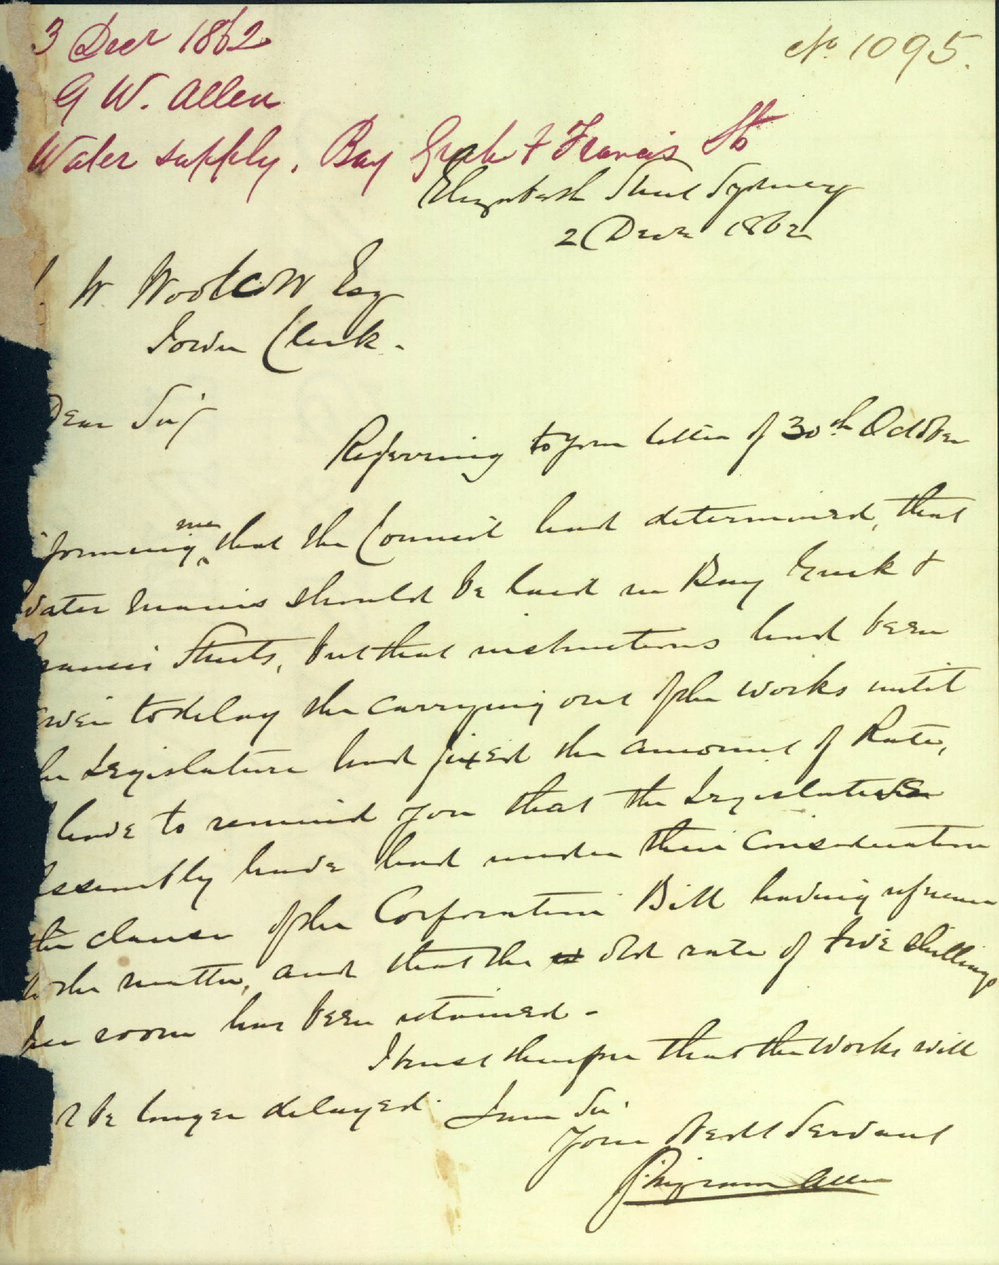 3 Decr 1862
No 1095.
G W. Allen
Water supply, Bay Greek & Francis Sts
Elizabeth Street Sydney
2 Decr 1862
W. Woolcott Esq
Town Clerk.
Dear Sir
Referring to your letter of 30th October
forming me that the Council had determined, that
water mains should be laid in Bay Greek &
rancis Streets, but that instructions had been
iven to delay the carrying out of the works until
he Legislature had fixed the amount of Rate,
I have to remind you that the Legislative
Assembly have had under their consideration
the clause of the Corporation Bill having reference
to the matter, and that the old rate of five shillings
per room has been retained -
I trust therefore that the works will
t be longer delayed. I am Sir
Your Obedt Servant
G. Wigram Allen